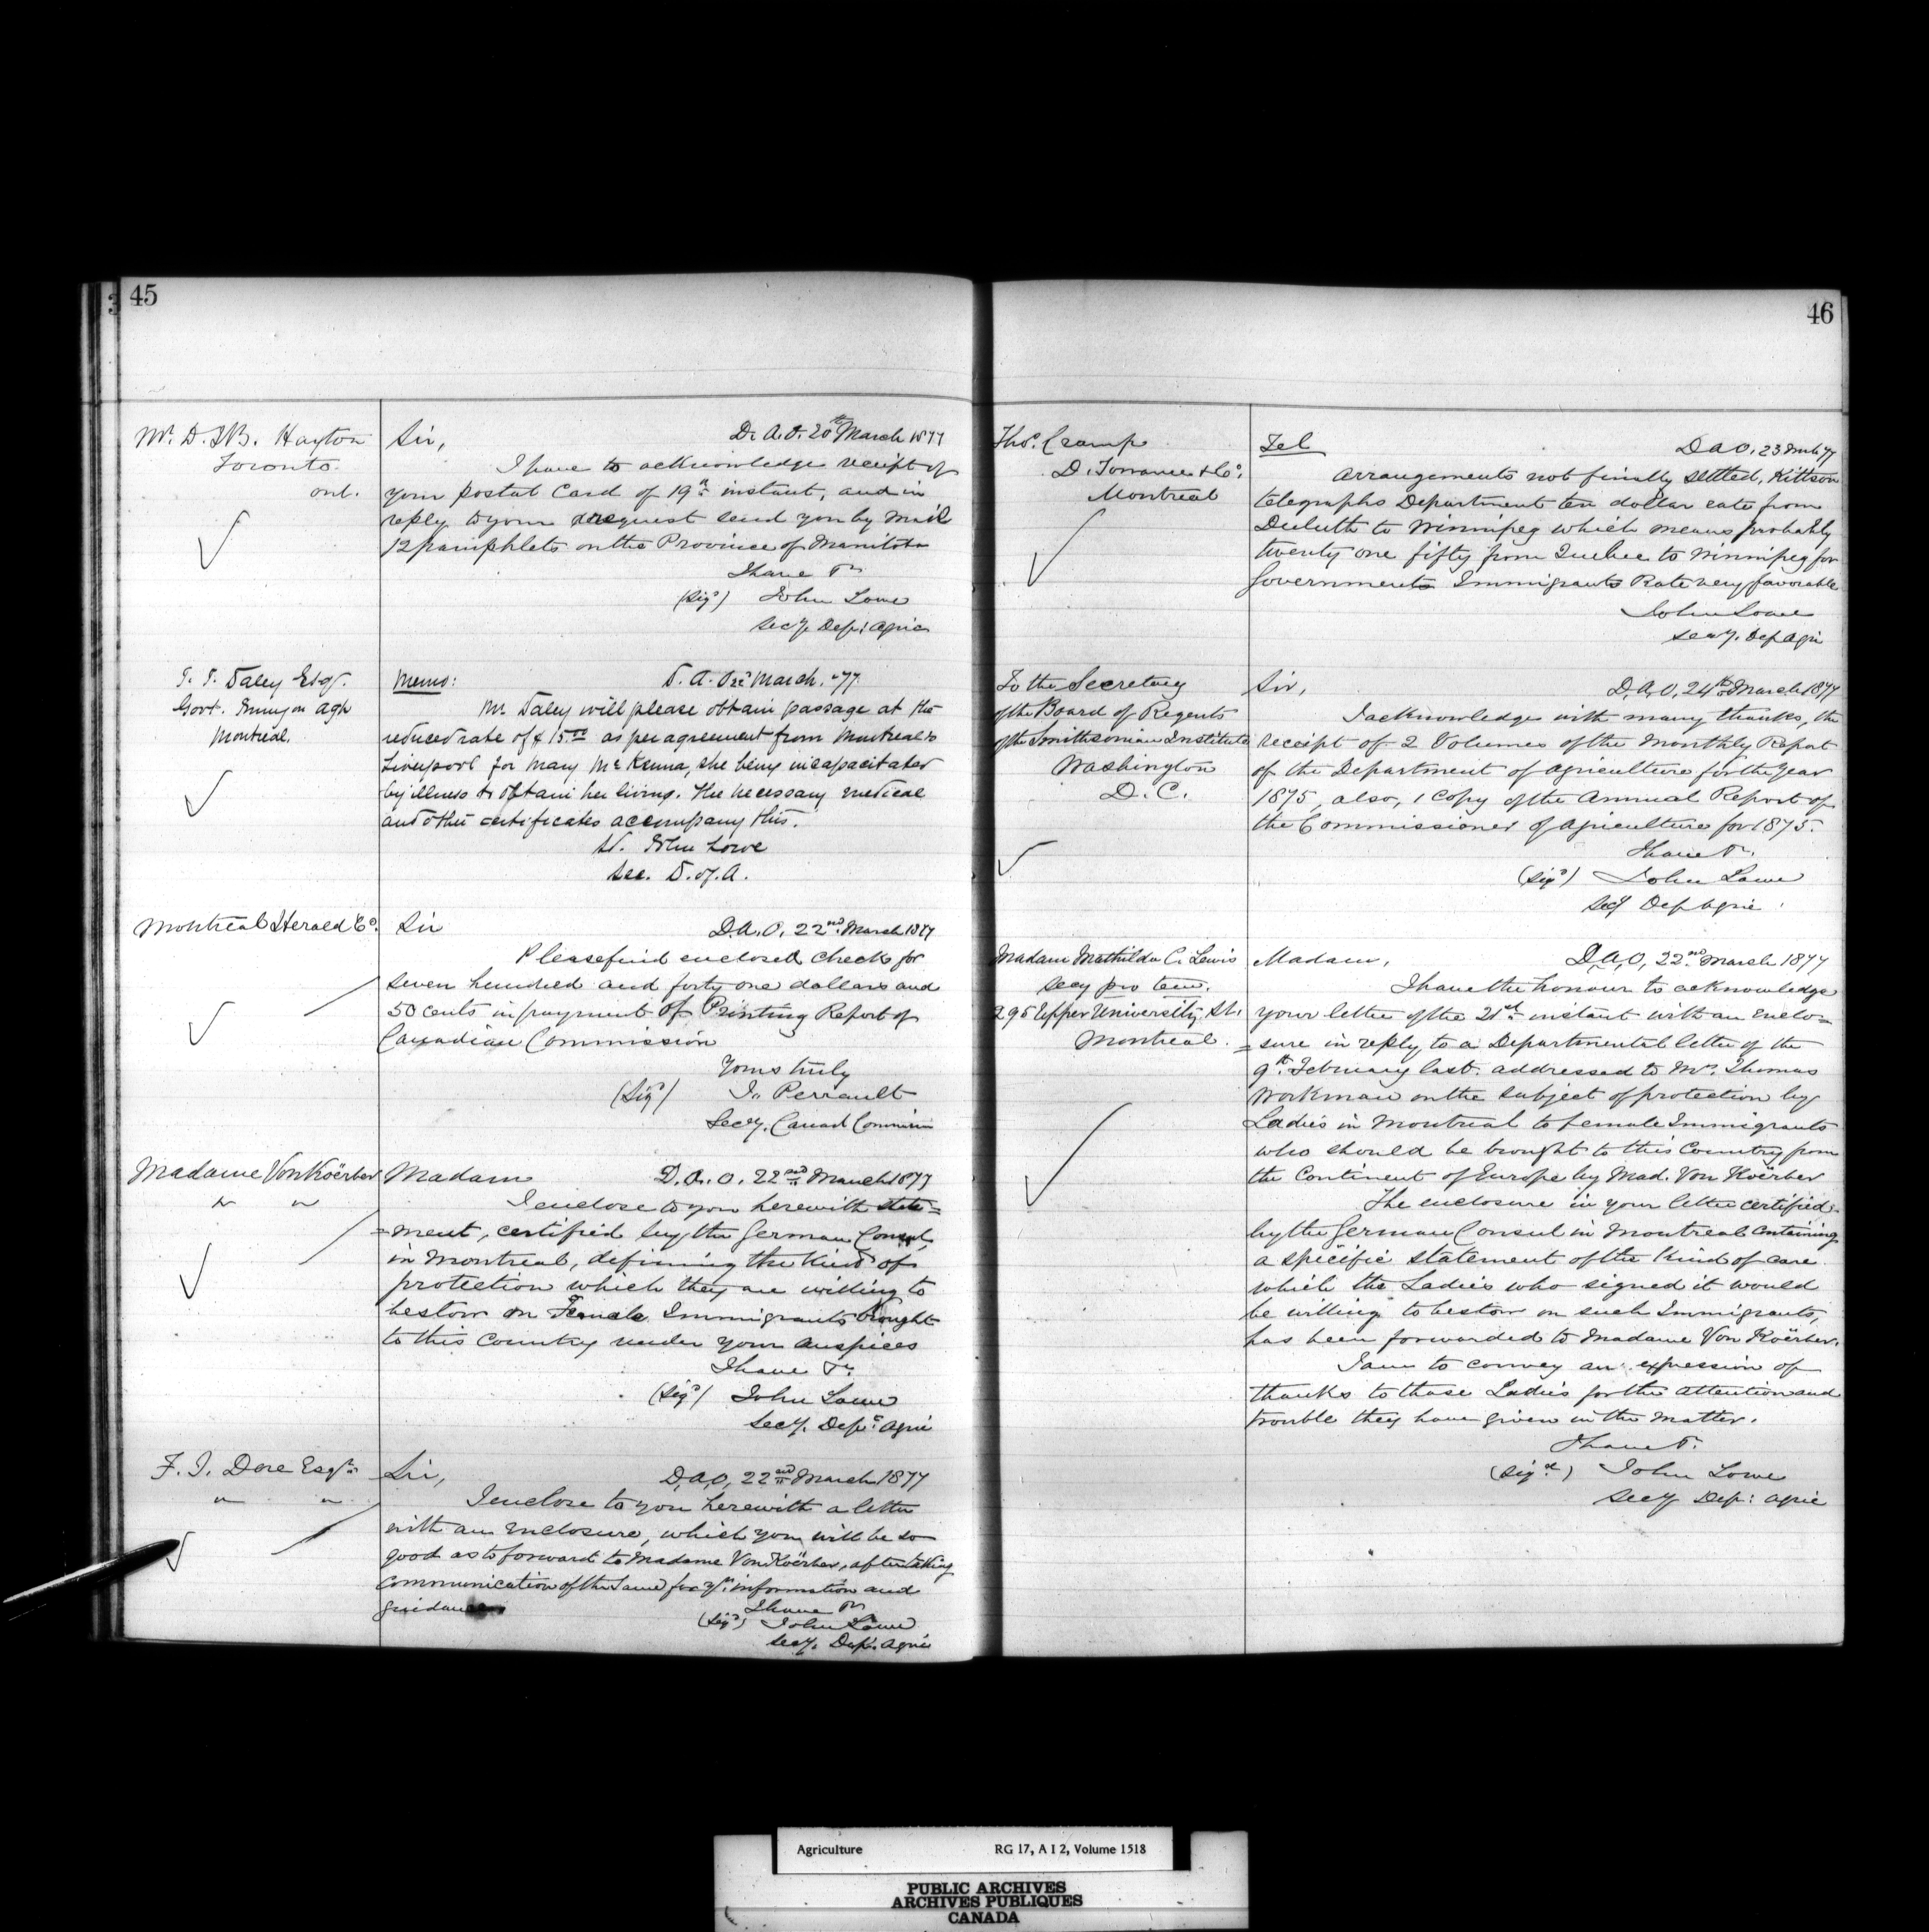 45
Mr. D. J. B. Hayton
Toronto.
ont.
Sir,
D. A. O. 20th March 1877
I have to acknowledge receipt of
your postal Card of 19th instant, and in
reply to your request send you by Mail
12 pamphlets on the Province of Manitoba
I have &c
(Sigd) John Lowe
Secy. Dep: Agric
J. J. Daley Esq.
Govt. Immgn Agt
Montreal.
Memo:
D. A. March. -77
Mr Daley will please obtain passage at the
reduced rate of $15.00 as per agreement from Montreal to
Liverpool for Mary McKenna, she being incapacitated
by illness to obtain her living. The necessary medical
and other certificates accompany this.
John Lowe
Sec. D. of. A.
Montreal Herald Co.
Sir
D. A. O. 22nd March 1877
Please find enclosed check for
Seven hundred and forty one dollars and
50 cents in payment of Printing Report of
Canadian Commission
Yours truly
(Sigd) J. Perrault
Secy. Canad Commission
Madame Von Koërber
" "
Madam
D. A. O. 22nd March 1877
I enclose to you herewith state=
=ment, certified by the German Consul,
in Montreal, defining the kind of
protection which they are willing to
bestow on Female Immigrants brought
to this Country under your auspices
I have &c
(Sigd) John Lowe
Secy. Dept: Agric
F. J. Dore Esqr.
" "
Sir,
D. A. O, 22nd March 1877
I enclose to you herewith a letter
with an Enclosure, which you will be so
good as to forward to Madame Von Koërber, after taking
communication of the same for yr. information and
guidance
I have &c
(Sigd) John Lowe
Secy. Dept. Agric
46
Thos. Cramp
D. Torrance & Co.
Montreal
Tel
D A O, 23 Mch 77
Arrangements not finally settled, Kittson
telegraphs Department ten dollar rate from
Duluth to Winnipeg which means probably
twenty one fifty from Quebec to Winnipeg for
Governments Immigrants Rate very favorable
John Lowe
Secy. Dep Agri
To the Secretary
of the Board of Regents
of the Smithsonian Institute
Washington
D. C.
Sir,
D. A, O, 24th March 1877
I acknowledge with many thanks, the
receipt of 2 Volumes of the Monthly Report
of the Department of Agriculture for the Year
1875, also, 1 Copy of the Annual Report of
the Commissioner of Agriculture for 1875.
I have &c.
(Sigd) John Lowe
Secy Dep Agric
Madam Mathilda C. Lewis
Secy pro tem.
295 Upper University St.
Montreal.
Madam,
D A, O, 22nd March 1877
I have the honour to acknowledge
your letter of the 21st instant with an Enclo=
=sure in reply to a Departmental letter of the
9th February last. addressed to Mr. Thomas
Workman on the subject of protection by
Ladies in Montreal to female Immigrants
who should be brought to this Country from
the Continent of Europe by Mad. Von Koërber
The enclosure in your letter certified
by the German Consul in Montreal containing
a specific statement of the kind of care
which the Ladies who signed it would
be willing to bestow on such Immigrants,
has been forwarded to Madame Von Koërber.
I am to convey an expression of
thanks to those Ladies for the attention and
trouble they have given in the matter.
I have &c.
(Sigd) John Lowe
Secy Dep: Agric
Agriculture RG 17, A I 2, Volume 1518
PUBLIC ARCHIVES
ARCHIVES PUBLIQUES
CANADA